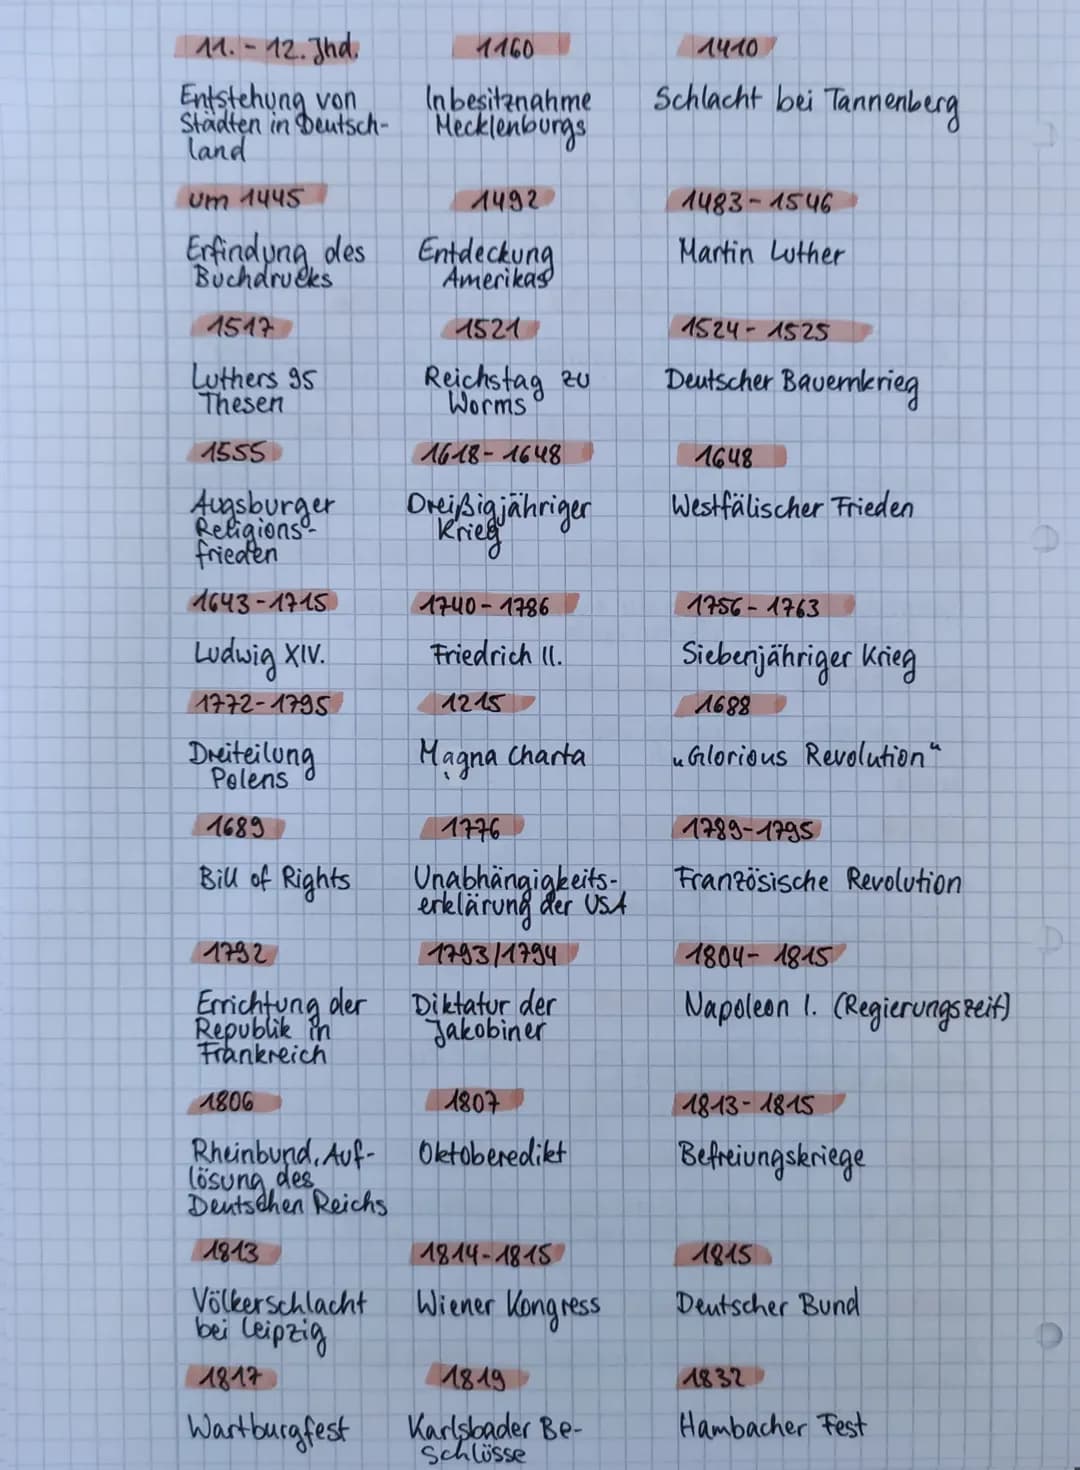 11. - 12. Jhd.
1160
1410
Entstehung von
Städten in Deutsch-
land
Inbesitznahme
Mecklenburgs
Schlacht bei Tannenberg
um 1445
1492
1483 - 1546
Erfindung des
Buchdrucks
Entdeckung
Amerikas
Martin Luther
1517
1521
1524 - 1525
Luthers 95
Thesen
Reichstag zu
Worms
Deutscher Bauernkrieg
1555
1618 - 1648
1648
Augsburger
Religions-
frieden
Dreißigjähriger
Krieg
Westfälischer Frieden
1643 - 1715
1740 - 1786
1756 - 1763
Ludwig XIV.
Friedrich II.
Siebenjähriger Krieg
1772 - 1795
1215
1688
Dreiteilung
Polens
Magna Charta
„Glorious Revolution“
1689
1776
1789-1795
Bill of Rights
Unabhängigkeits-
erklärung der USA
Französische Revolution
1792
1793/1794
1804 - 1815
Errichtung der
Republik in
Frankreich
Diktatur der
Jakobiner
Napoleon I. (Regierungszeit)
1806
1807
1813 - 1815
Rheinbund, Auf-
lösung des
Deutschen Reichs
Oktoberedikt
Befreiungskriege
1813
1814-1815
1815
Völkerschlacht
bei Leipzig
Wiener Kongress
Deutscher Bund
1817
1819
1832
Wartburgfest
Karlsbader Be-
schlüsse
Hambacher Fest